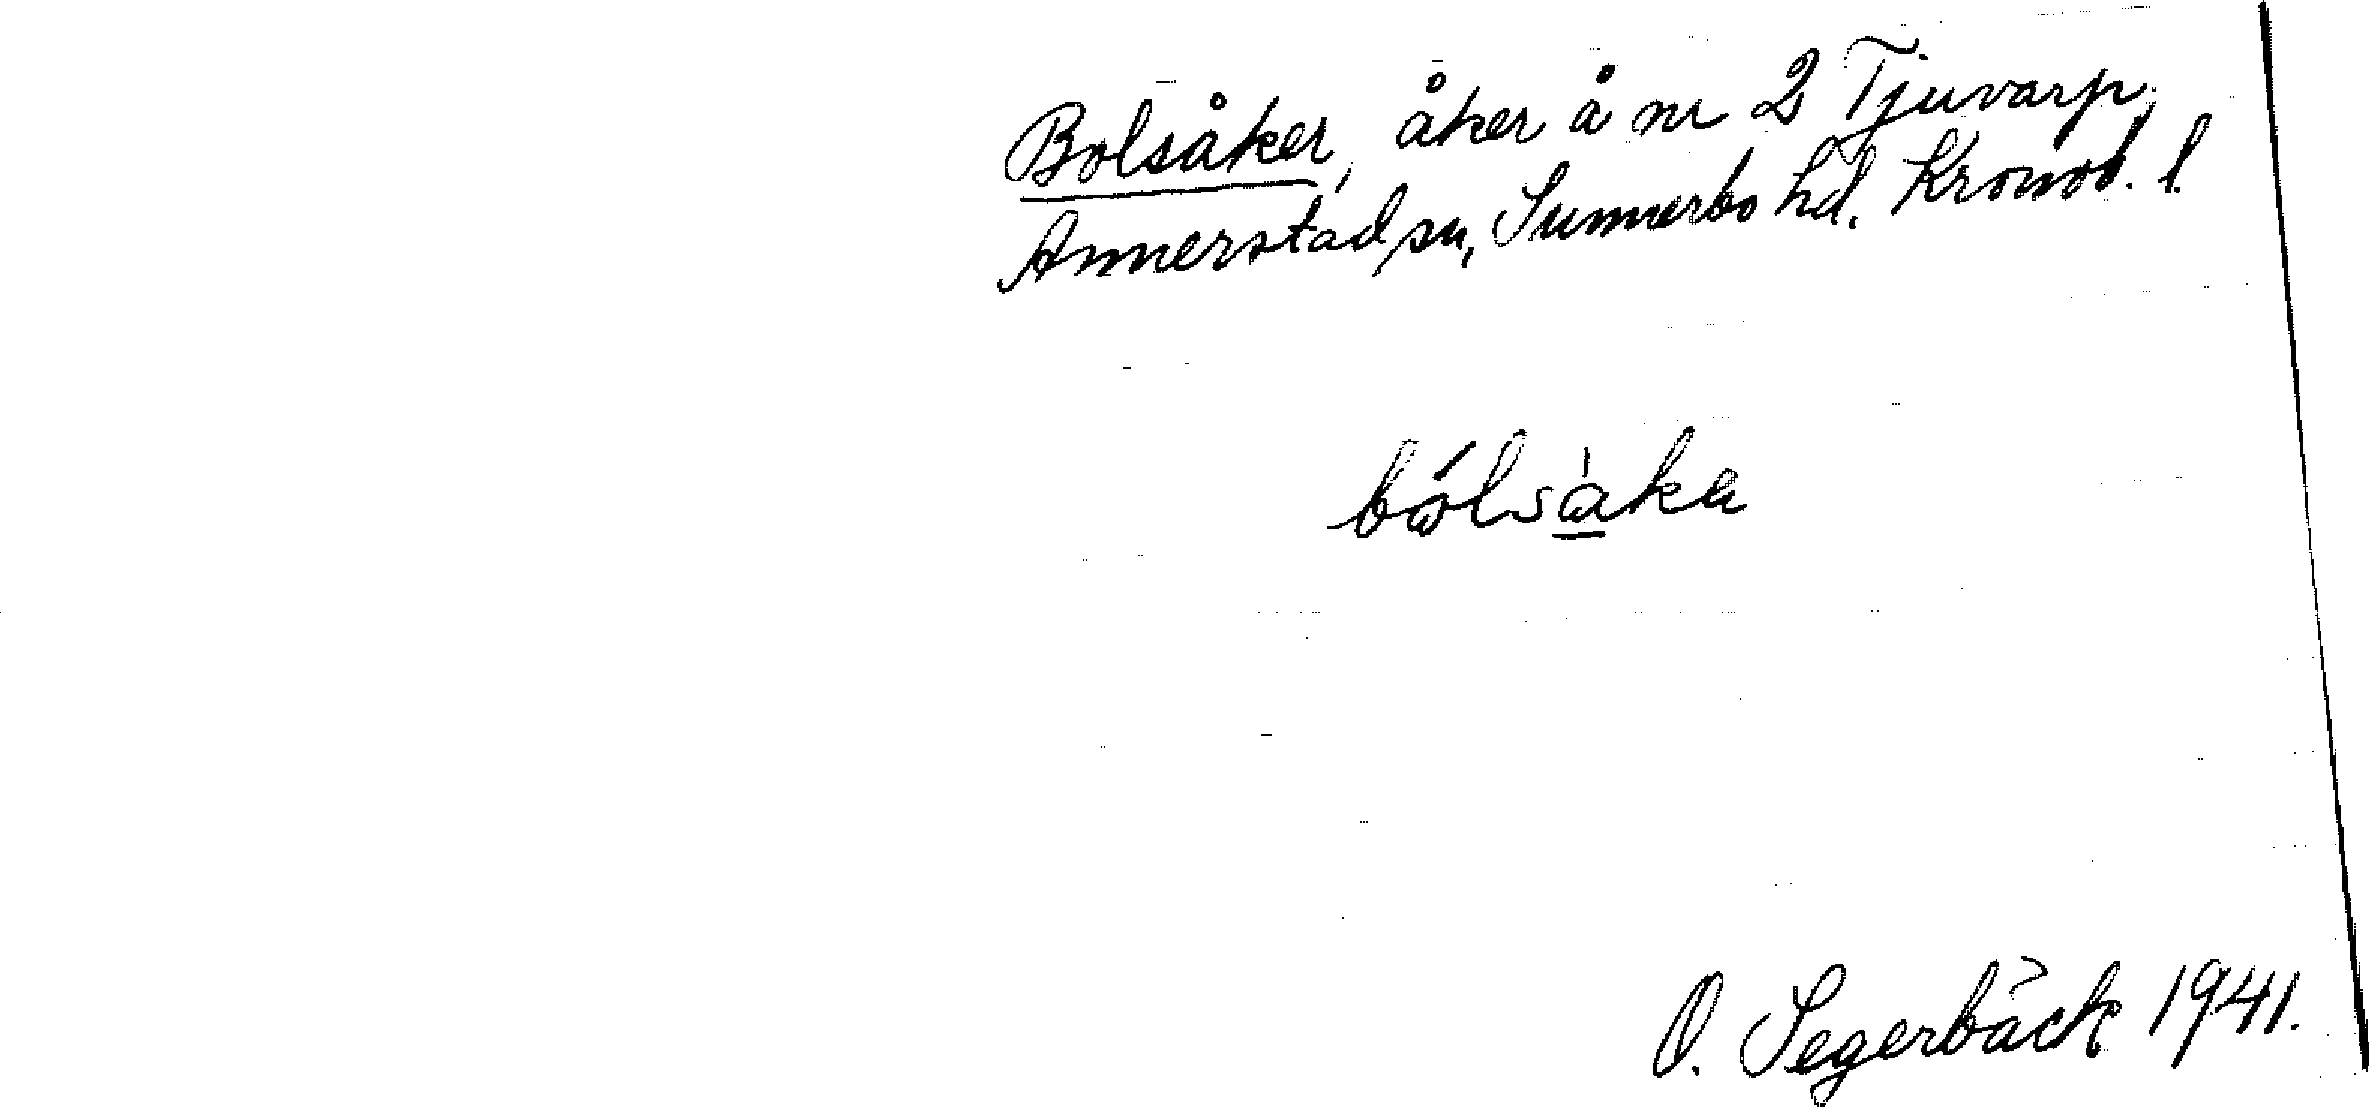 Bolsåker, åker å nr 2 Tjuvarp,
Annerstad sn, Sunnerbo hd. Kronob. l.
bólsàka
O. Segerbäck 1941.